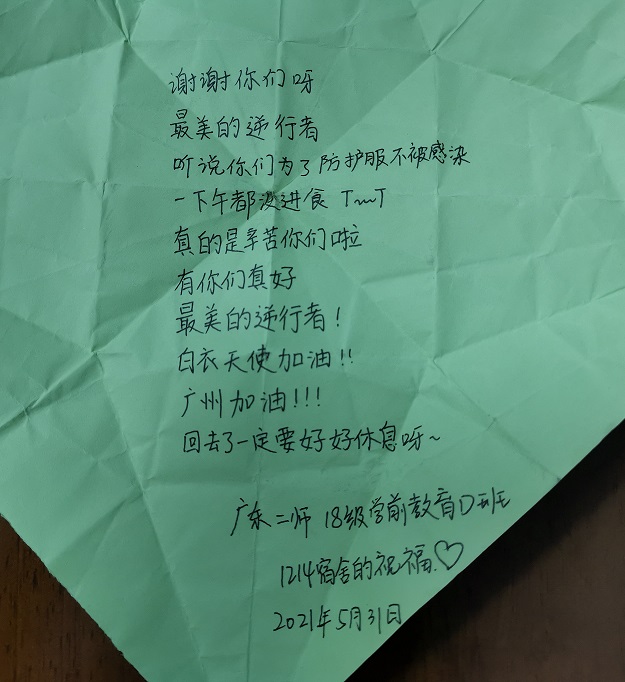 谢谢你们呀
最美的逆行者
听说你们为了防护服不被感染
一下午都没进食 T~~T
真的是辛苦你们啦
有你们真好
最美的逆行者！
白衣天使加油！！
广州加油！！！
回去了一定要好好休息呀~
广东二师 18级学前教育D班
1214宿舍的祝福♡
2021年5月31日